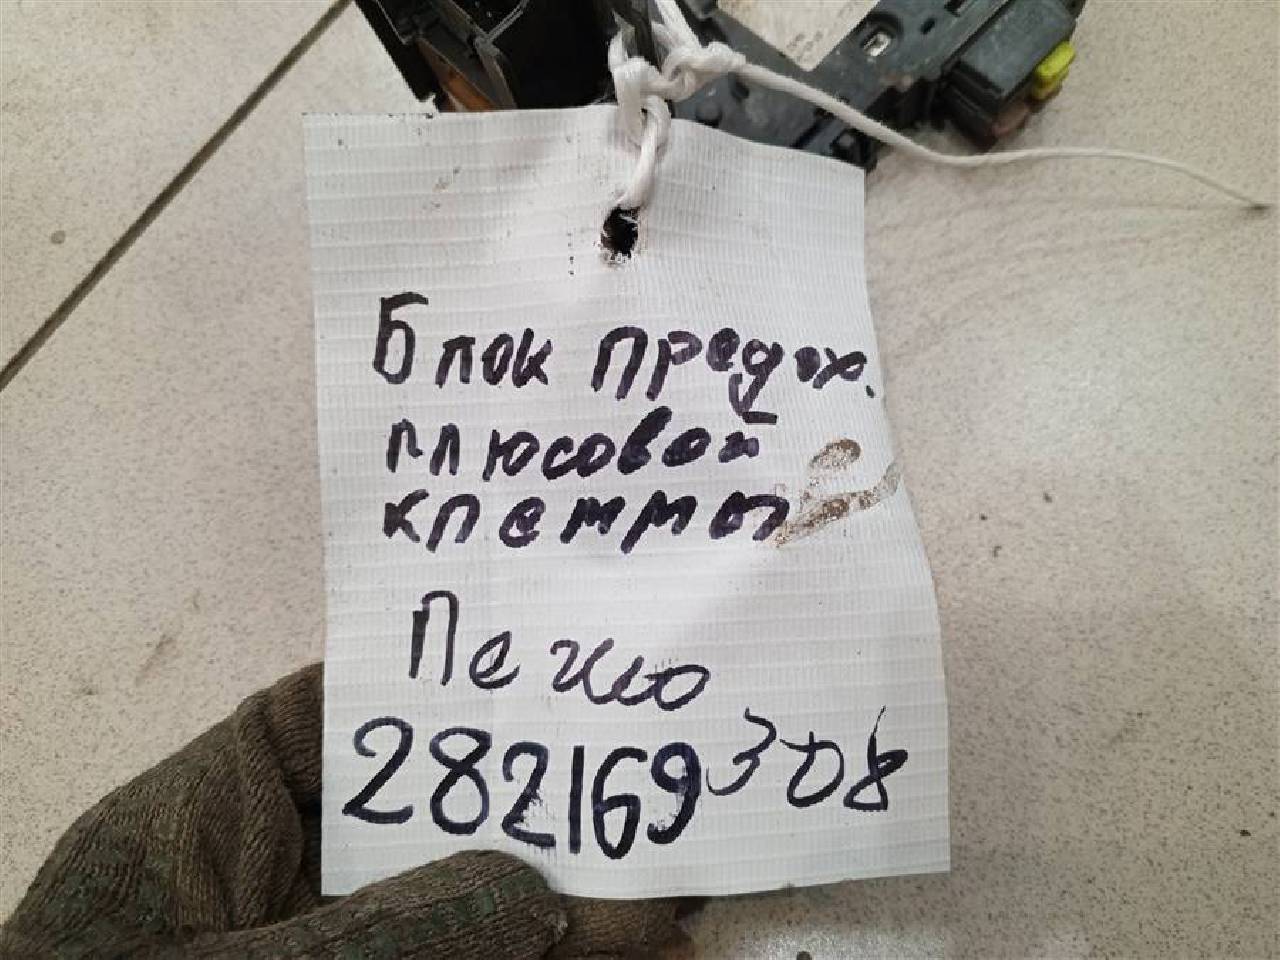 Блок предох.
плюсовой
клеммы
Пежо
282169 308